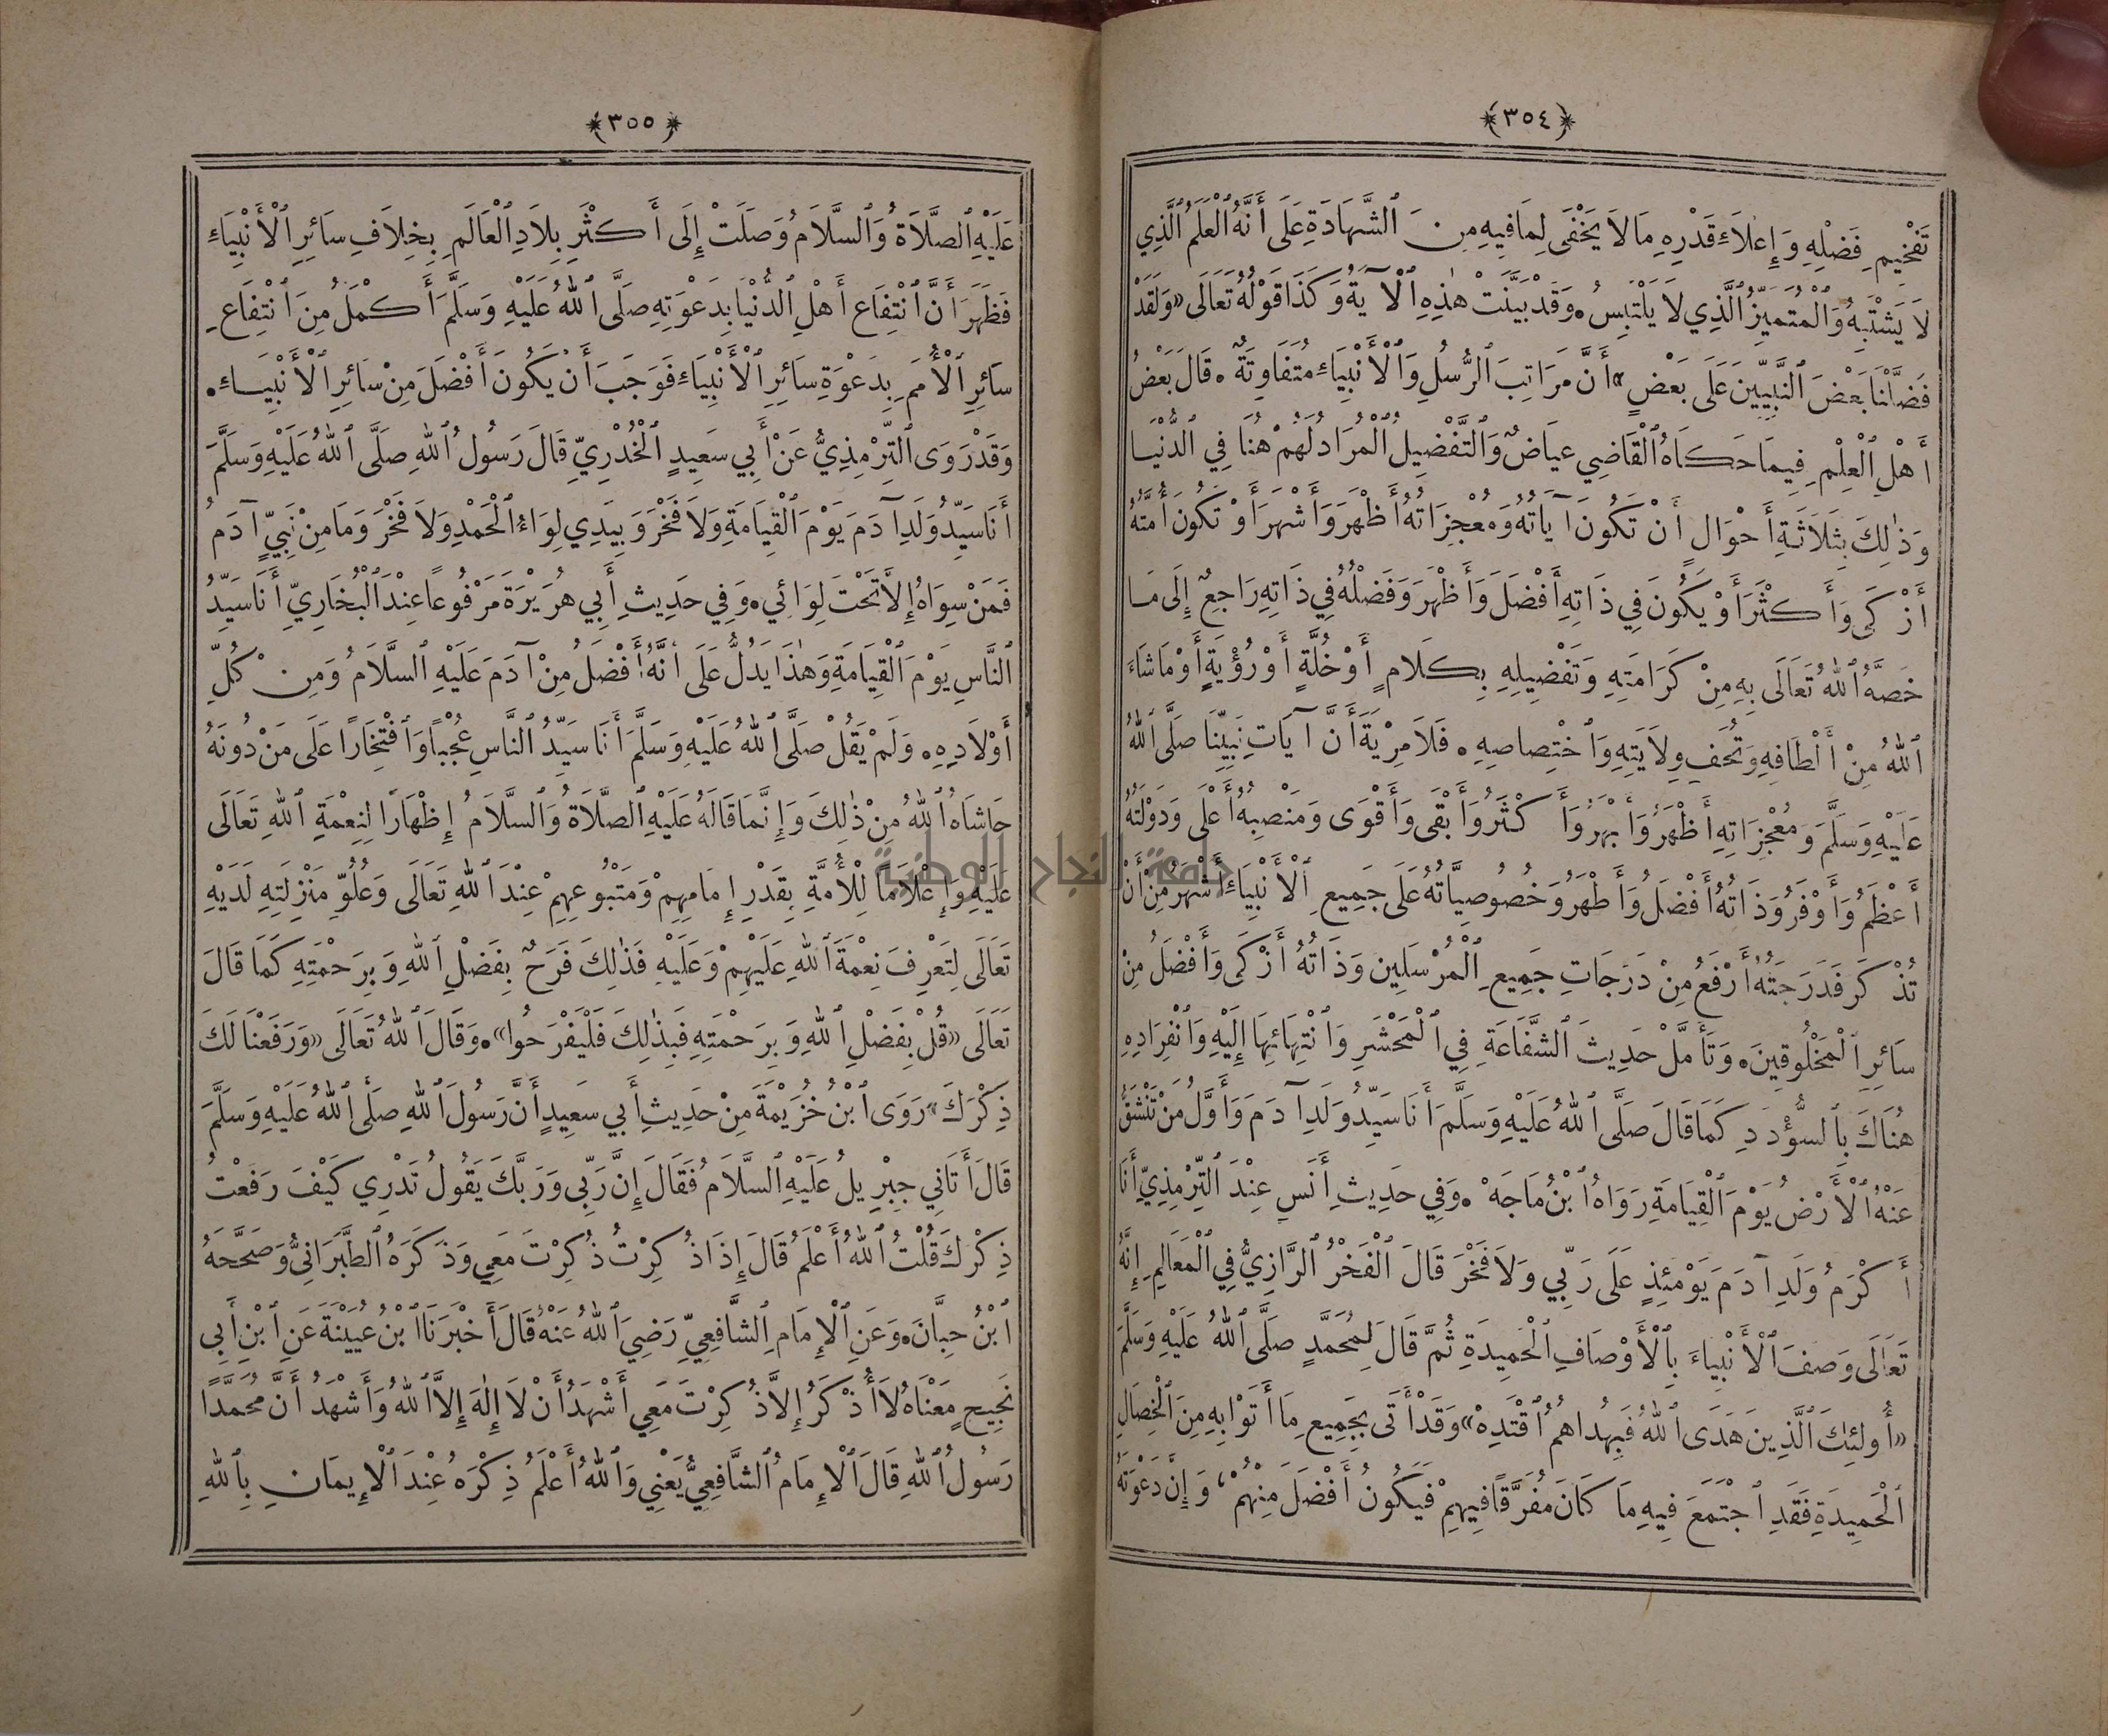 ﴿٣٥٤﴾
تَفْخِيمِ فَضْلِهِ وَإِعْلَاءِ قَدْرِهِ مَا لَا يَخْفَى لِمَا فِيهِ مِنَ ٱلشَّهَادَةِ عَلَى أَنَّهُ ٱلْعَلَمُ ٱلَّذِي
لَا يَشْتَبِهُ وَٱلْمُتَمَيِّزُ ٱلَّذِي لَا يَلْتَبِسُ. وَقَدْ بَيَّنَتْ هٰذِهِ ٱلْآيَةُ وَكَذَا قَوْلُهُ تَعَالَى «وَلَقَدْ
فَضَّلْنَا بَعْضَ ٱلنَّبِيِّينَ عَلَى بَعْضٍ» أَنَّ مَرَاتِبَ ٱلرُّسُلِ وَٱلْأَنْبِيَاءِ مُتَفَاوِتَةٌ. قَالَ بَعْضُ
أَهْلِ ٱلْعِلْمِ فِيمَا حَكَاهُ ٱلْقَاضِي عِيَاضٌ وَٱلتَّفْضِيلُ ٱلْمُرَادُ لَهُمْ هُنَا فِي ٱلدُّنْيَا
وَذٰلِكَ بِثَلَاثَةِ أَحْوَالٍ أَنْ تَكُونَ آيَاتُهُ وَمُعْجِزَاتُهُ أَظْهَرَ وَأَشْهَرَ أَوْ تَكُونَ أُمَّتُهُ
أَزْكَى وَأَكْثَرَ أَوْ يَكُونَ فِي ذَاتِهِ أَفْضَلَ وَأَظْهَرَ وَفَضْلُهُ فِي ذَاتِهِ رَاجِعٌ إِلَى مَا
خَصَّهُ ٱللهُ تَعَالَى بِهِ مِنْ كَرَامَتِهِ وَتَفْضِيلِهِ بِكَلَامٍ أَوْ خُلَّةٍ أَوْ رُؤْيَةٍ أَوْ مَا شَاءَ
ٱللهُ مِنْ أَلْطَافِهِ وَتُحَفِ وِلَايَتِهِ وَٱخْتِصَاصِهِ. فَلَا مِرْيَةَ أَنَّ آيَاتِ نَبِيِّنَا صَلَّى ٱللهُ
عَلَيْهِ وَسَلَّمَ وَمُعْجِزَاتِهِ أَظْهَرُ وَأَبْهَرُ وَأَكْثَرُ وَأَبْقَى وَأَقْوَى وَمَنْصِبُهُ أَعْلَى وَدَوْلَتُهُ
أَعْظَمُ وَأَوْفَرُ وَذَاتُهُ أَفْضَلُ وَأَطْهَرُ وَخُصُوصِيَّاتُهُ عَلَى جَمِيعِ ٱلْأَنْبِيَاءِ أَشْهَرُ مِنْ أَنْ
تُذْكَرَ فَدَرَجَتُهُ أَرْفَعُ مِنْ دَرَجَاتِ جَمِيعِ ٱلْمُرْسَلِينَ وَذَاتُهُ أَزْكَى وَأَفْضَلُ مِنْ
سَائِرِ ٱلْمَخْلُوقِينَ. وَتَأَمَّلْ حَدِيثَ ٱلشَّفَاعَةِ فِي ٱلْمَحْشَرِ وَٱنْتِهَائِهَا إِلَيْهِ وَٱنْفِرَادِهِ
هُنَاكَ بِٱلسُّؤْدَدِ كَمَا قَالَ صَلَّى ٱللهُ عَلَيْهِ وَسَلَّمَ أَنَا سَيِّدُ وَلَدِ آدَمَ وَأَوَّلُ مَنْ تَنْشَقُّ
عَنْهُ ٱلْأَرْضُ يَوْمَ ٱلْقِيَامَةِ رَوَاهُ ٱبْنُ مَاجَهْ. وَفِي حَدِيثِ أَنَسٍ عِنْدَ ٱلتِّرْمِذِيِّ أَنَا
أَكْرَمُ وَلَدِ آدَمَ يَوْمَئِذٍ عَلَى رَبِّي وَلَا فَخْرَ قَالَ ٱلْفَخْرُ ٱلرَّازِيُّ فِي ٱلْمَعَالِمِ إِنَّهُ
تَعَالَى وَصَفَ ٱلْأَنْبِيَاءَ بِٱلْأَوْصَافِ ٱلْحَمِيدَةِ ثُمَّ قَالَ لِمُحَمَّدٍ صَلَّى ٱللهُ عَلَيْهِ وَسَلَّمَ
«أُولٰئِكَ ٱلَّذِينَ هَدَى ٱللهُ فَبِهُدَاهُمُ ٱقْتَدِهْ» وَقَدْ أَتَى بِجَمِيعِ مَا أَتَوْا بِهِ مِنَ ٱلْخِصَالِ
ٱلْحَمِيدَةِ فَقَدِ ٱجْتَمَعَ فِيهِ مَا كَانَ مُفَرَّقًا فِيهِمْ فَيَكُونُ أَفْضَلَ مِنْهُمْ، وَإِنَّ دَعْوَتَهُ
﴿٣٥٥﴾
عَلَيْهِ ٱلصَّلَاةُ وَٱلسَّلَامُ وَصَلَتْ إِلَى أَكْثَرِ بِلَادِ ٱلْعَالَمِ بِخِلَافِ سَائِرِ ٱلْأَنْبِيَاءِ
فَظَهَرَ أَنَّ ٱنْتِفَاعَ أَهْلِ ٱلدُّنْيَا بِدَعْوَتِهِ صَلَّى ٱللهُ عَلَيْهِ وَسَلَّمَ أَكْمَلُ مِنَ ٱنْتِفَاعِ
سَائِرِ ٱلْأُمَمِ بِدَعْوَةِ سَائِرِ ٱلْأَنْبِيَاءِ فَوَجَبَ أَنْ يَكُونَ أَفْضَلَ مِنْ سَائِرِ ٱلْأَنْبِيَاءِ.
وَقَدْ رَوَى ٱلتِّرْمِذِيُّ عَنْ أَبِي سَعِيدٍ ٱلْخُدْرِيِّ قَالَ رَسُولُ ٱللهِ صَلَّى ٱللهُ عَلَيْهِ وَسَلَّمَ
أَنَا سَيِّدُ وَلَدِ آدَمَ يَوْمَ ٱلْقِيَامَةِ وَلَا فَخْرَ وَبِيَدِي لِوَاءُ ٱلْحَمْدِ وَلَا فَخْرَ وَمَا مِنْ نَبِيٍّ آدَمُ
فَمَنْ سِوَاهُ إِلَّا تَحْتَ لِوَائِي. وَفِي حَدِيثِ أَبِي هُرَيْرَةَ مَرْفُوعًا عِنْدَ ٱلْبُخَارِيِّ أَنَا سَيِّدُ
ٱلنَّاسِ يَوْمَ ٱلْقِيَامَةِ وَهٰذَا يَدُلُّ عَلَى أَنَّهُ أَفْضَلُ مِنْ آدَمَ عَلَيْهِ ٱلسَّلَامُ وَمِنْ كُلِّ
أَوْلَادِهِ. وَلَمْ يَقُلْ صَلَّى ٱللهُ عَلَيْهِ وَسَلَّمَ أَنَا سَيِّدُ ٱلنَّاسِ عُجْبًا وَٱفْتِخَارًا عَلَى مَنْ دُونَهُ
حَاشَاهُ ٱللهُ مِنْ ذٰلِكَ وَإِنَّمَا قَالَهُ عَلَيْهِ ٱلصَّلَاةُ وَٱلسَّلَامُ إِظْهَارًا لِنِعْمَةِ ٱللهِ تَعَالَى
عَلَيْهِ وَإِعْلَامًا لِلْأُمَّةِ بِقَدْرِ إِمَامِهِمْ وَمَتْبُوعِهِمْ عِنْدَ ٱللهِ تَعَالَى وَعُلُوِّ مَنْزِلَتِهِ لَدَيْهِ
تَعَالَى لِتَعْرِفَ نِعْمَةَ ٱللهِ عَلَيْهِمْ وَعَلَيْهِ فَذٰلِكَ فَرَحٌ بِفَضْلِ ٱللهِ وَبِرَحْمَتِهِ كَمَا قَالَ
تَعَالَى «قُلْ بِفَضْلِ ٱللهِ وَبِرَحْمَتِهِ فَبِذٰلِكَ فَلْيَفْرَحُوا». وَقَالَ ٱللهُ تَعَالَى «وَرَفَعْنَا لَكَ
ذِكْرَكَ» رَوَى ٱبْنُ خُزَيْمَةَ مِنْ حَدِيثِ أَبِي سَعِيدٍ أَنَّ رَسُولَ ٱللهِ صَلَّى ٱللهُ عَلَيْهِ وَسَلَّمَ
قَالَ أَتَانِي جِبْرِيلُ عَلَيْهِ ٱلسَّلَامُ فَقَالَ إِنَّ رَبِّي وَرَبَّكَ يَقُولُ تَدْرِي كَيْفَ رَفَعْتُ
ذِكْرَكَ قُلْتُ ٱللهُ أَعْلَمُ قَالَ إِذَا ذُكِرْتُ ذُكِرْتَ مَعِي وَذَكَرَهُ ٱلطَّبَرَانِيُّ وَصَحَّحَهُ
ٱبْنُ حِبَّانَ. وَعَنِ ٱلْإِمَامِ ٱلشَّافِعِيِّ رَضِيَ ٱللهُ عَنْهُ قَالَ أَخْبَرَنَا ٱبْنُ عُيَيْنَةَ عَنِ ٱبْنِ أَبِي
نَجِيحٍ مَعْنَاهُ لَا أُذْكَرُ إِلَّا ذُكِرْتَ مَعِي أَشْهَدُ أَنْ لَا إِلٰهَ إِلَّا ٱللهُ وَأَشْهَدُ أَنَّ مُحَمَّدًا
رَسُولُ ٱللهِ قَالَ ٱلْإِمَامُ ٱلشَّافِعِيُّ يَعْنِي وَٱللهُ أَعْلَمُ ذِكْرَهُ عِنْدَ ٱلْإِيمَانِ بِٱللهِ
جامعة النجاح الوطنية